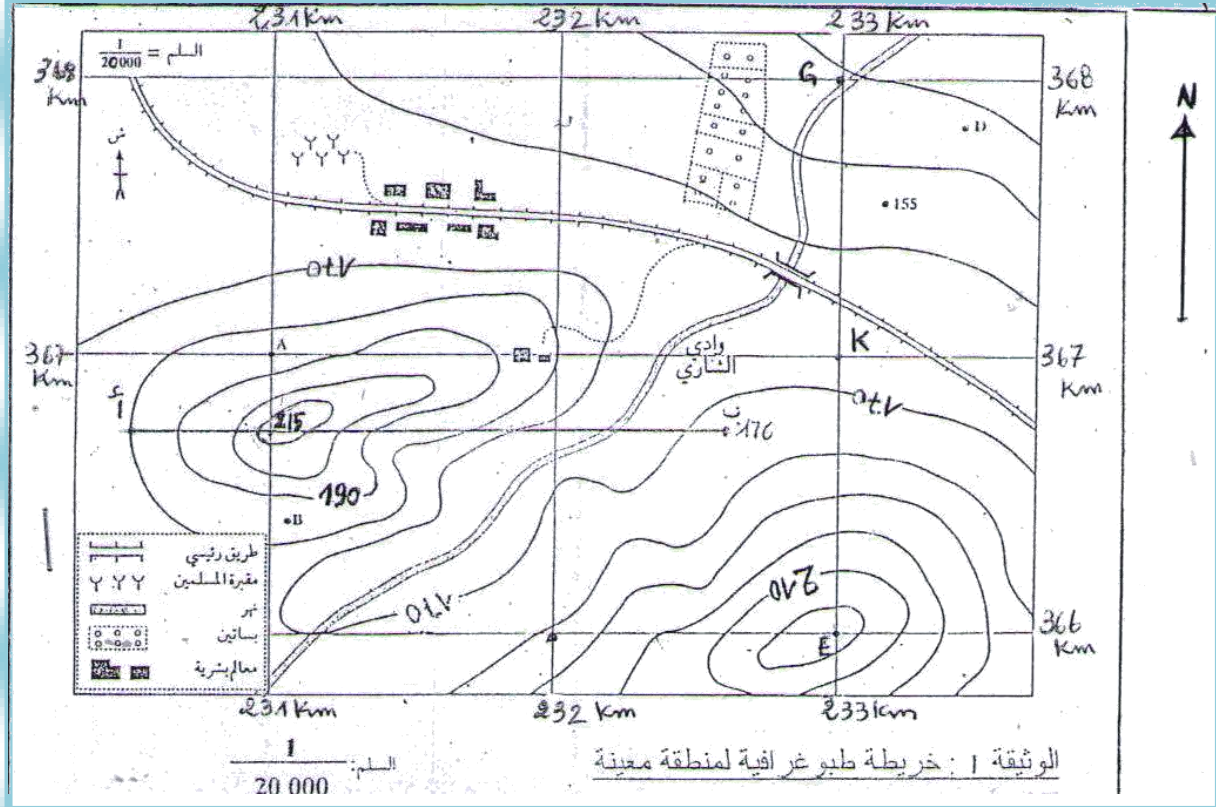 231 Km 232 Km 233 Km
السلم = 1/20000
368 Km
G
368 Km
N
D
155
170
367 Km
A
وادي الشاري
K
367 Km
أ
215
ب
176
170
190
B
170
210
E
366 Km
طريق رئيسي
مقبرة المسلمين
نهر
بساتين
معالم بشرية
231 Km 232 Km 233 Km
السلم: 1/20 000
الوثيقة 1 : خريطة طبوغرافية لمنطقة معينة